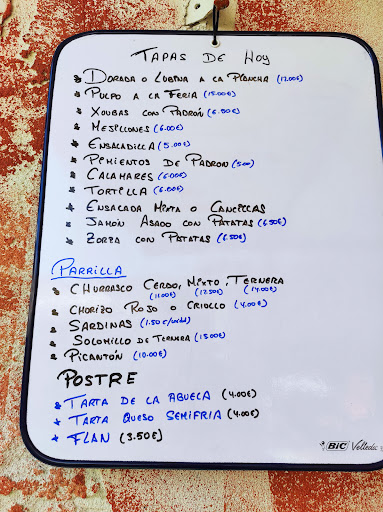 TAPAS DE HOY
DORADA O LUBINA A LA PLANCHA (17.00€)
PULPO A LA FERIA (15.00€)
XOUBAS CON PADRÓN (6.50€)
MEJILLONES (6.00€)
ENSALADILLA (5.00€)
PIMIENTOS DE PADRON (5.00)
CALAMARES (6.00€)
TORTILLA (6.00€)
ENSALADA MIXTA O CANCILLAS
JAMÓN ASADO CON PATATAS (6.50€)
ZORZA CON PATATAS (6.50€)
PARRILLA
CHURRASCO CERDO, MIXTO, TERNERA
(11.00€) (12.50€) (14.00€)
CHORIZO ROJO O CRIOLLO (4.00€)
SARDINAS (1.50€/udd)
SOLOMILLO DE TERNERA (15.00€)
PICANTÓN (10.00€)
POSTRE
TARTA DE LA ABUELA (4.00€)
TARTA QUESO SEMIFRIA (4.00€)
FLAN (3.50€)
BIC Velleda